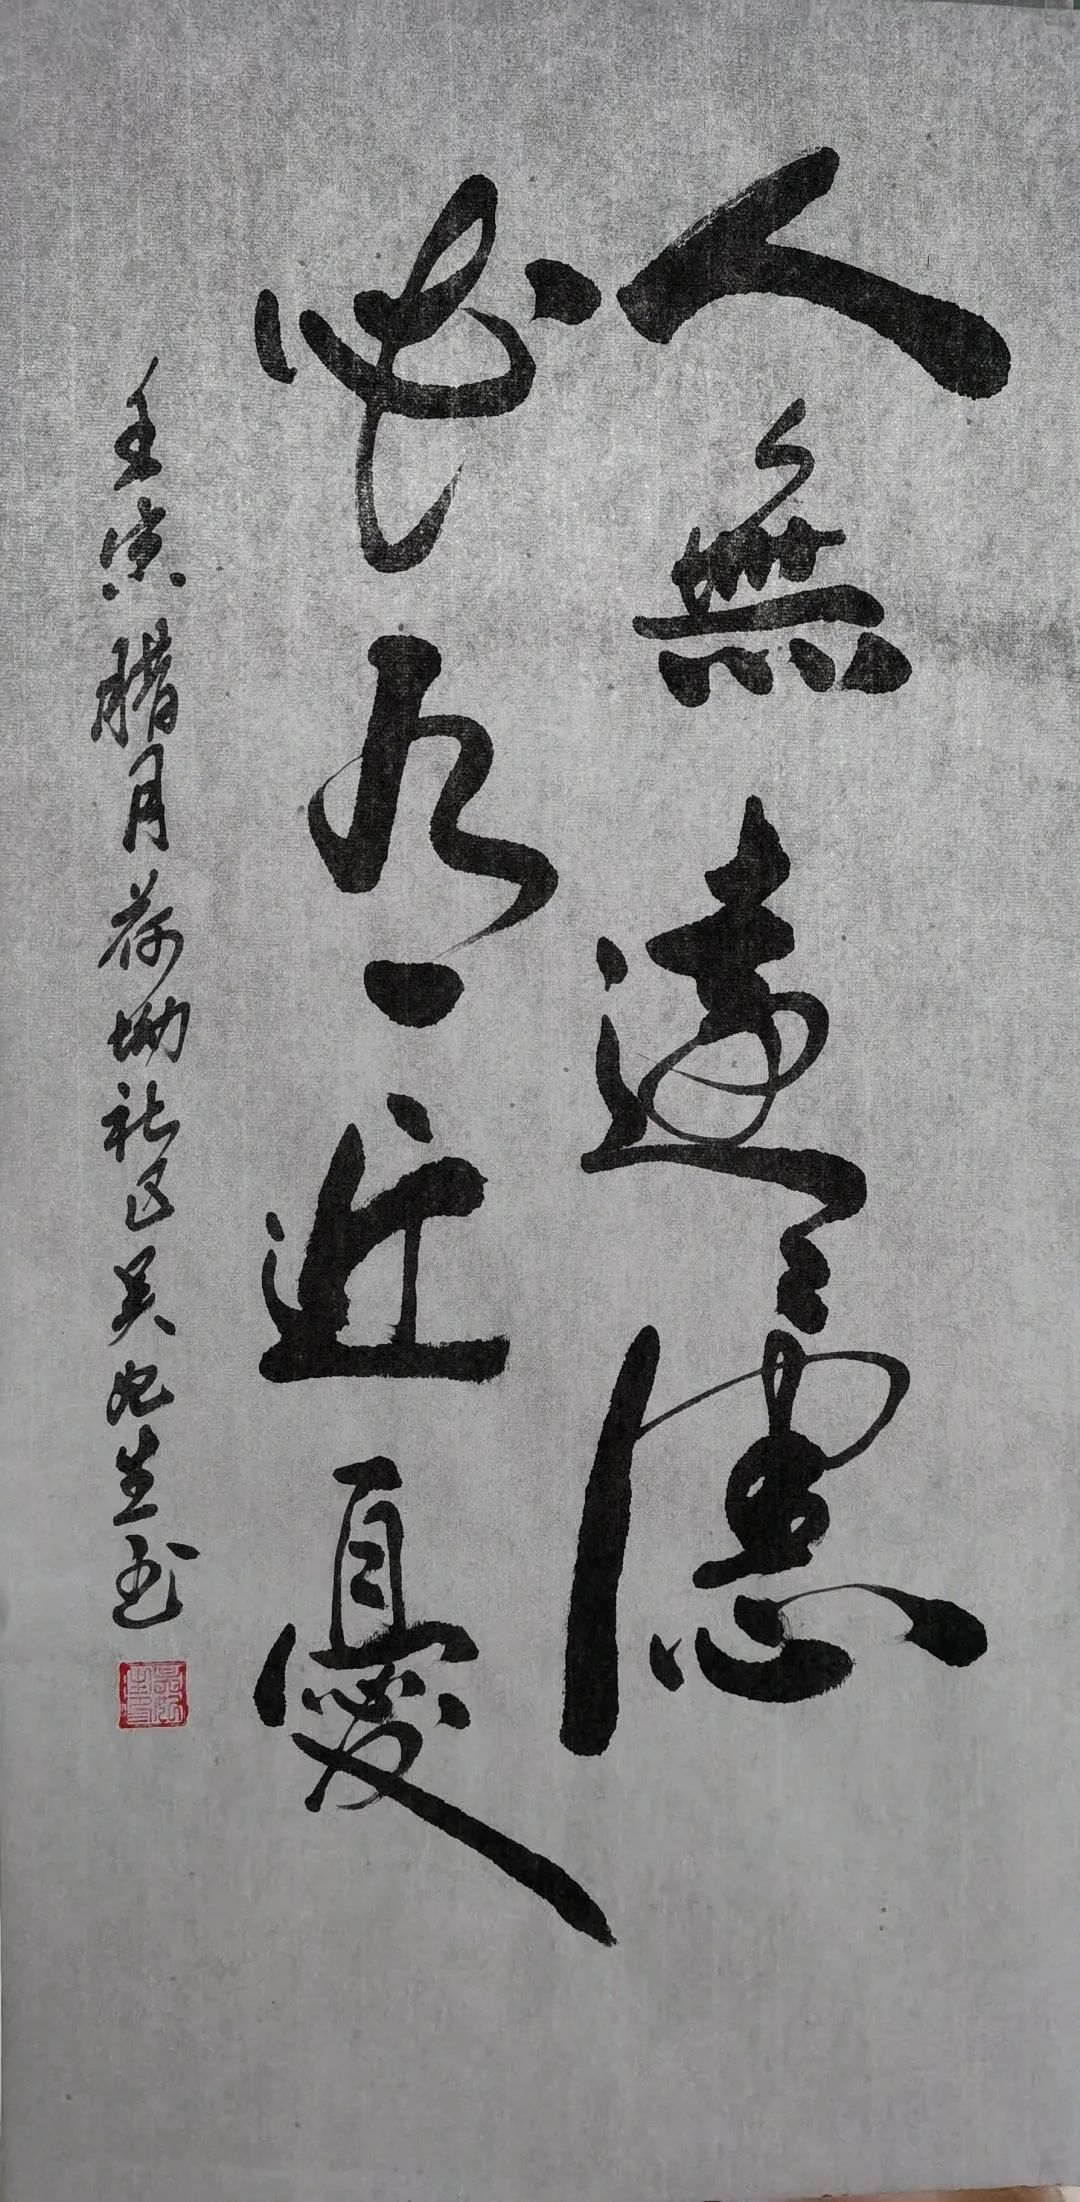 人無遠慮
必有近憂
壬寅腊月荷坳社区吴地生书